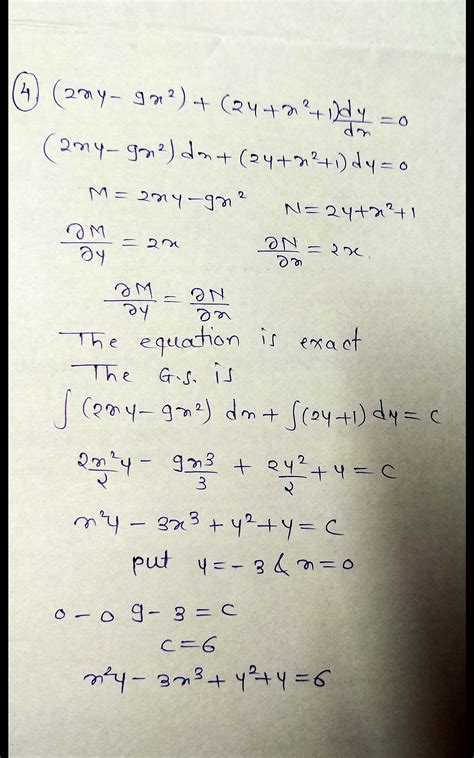 (4) (2xy - 9x²) + (2y + x² + 1) dy/dx = 0
(2xy - 9x²) dx + (2y + x² + 1) dy = 0
M = 2xy - 9x² N = 2y + x² + 1
∂M/∂y = 2x ∂N/∂x = 2x.
∂M/∂y = ∂N/∂x
The equation is exact
The G.S. is
∫ (2xy - 9x²) dx + ∫(2y + 1) dy = C
2x²y/2 - 9x³/3 + 2y²/2 + y = C
x²y - 3x³ + y² + y = C
put y = -3 & x = 0
0 - 0 9 - 3 = C
C = 6
x²y - 3x³ + y² + y = 6